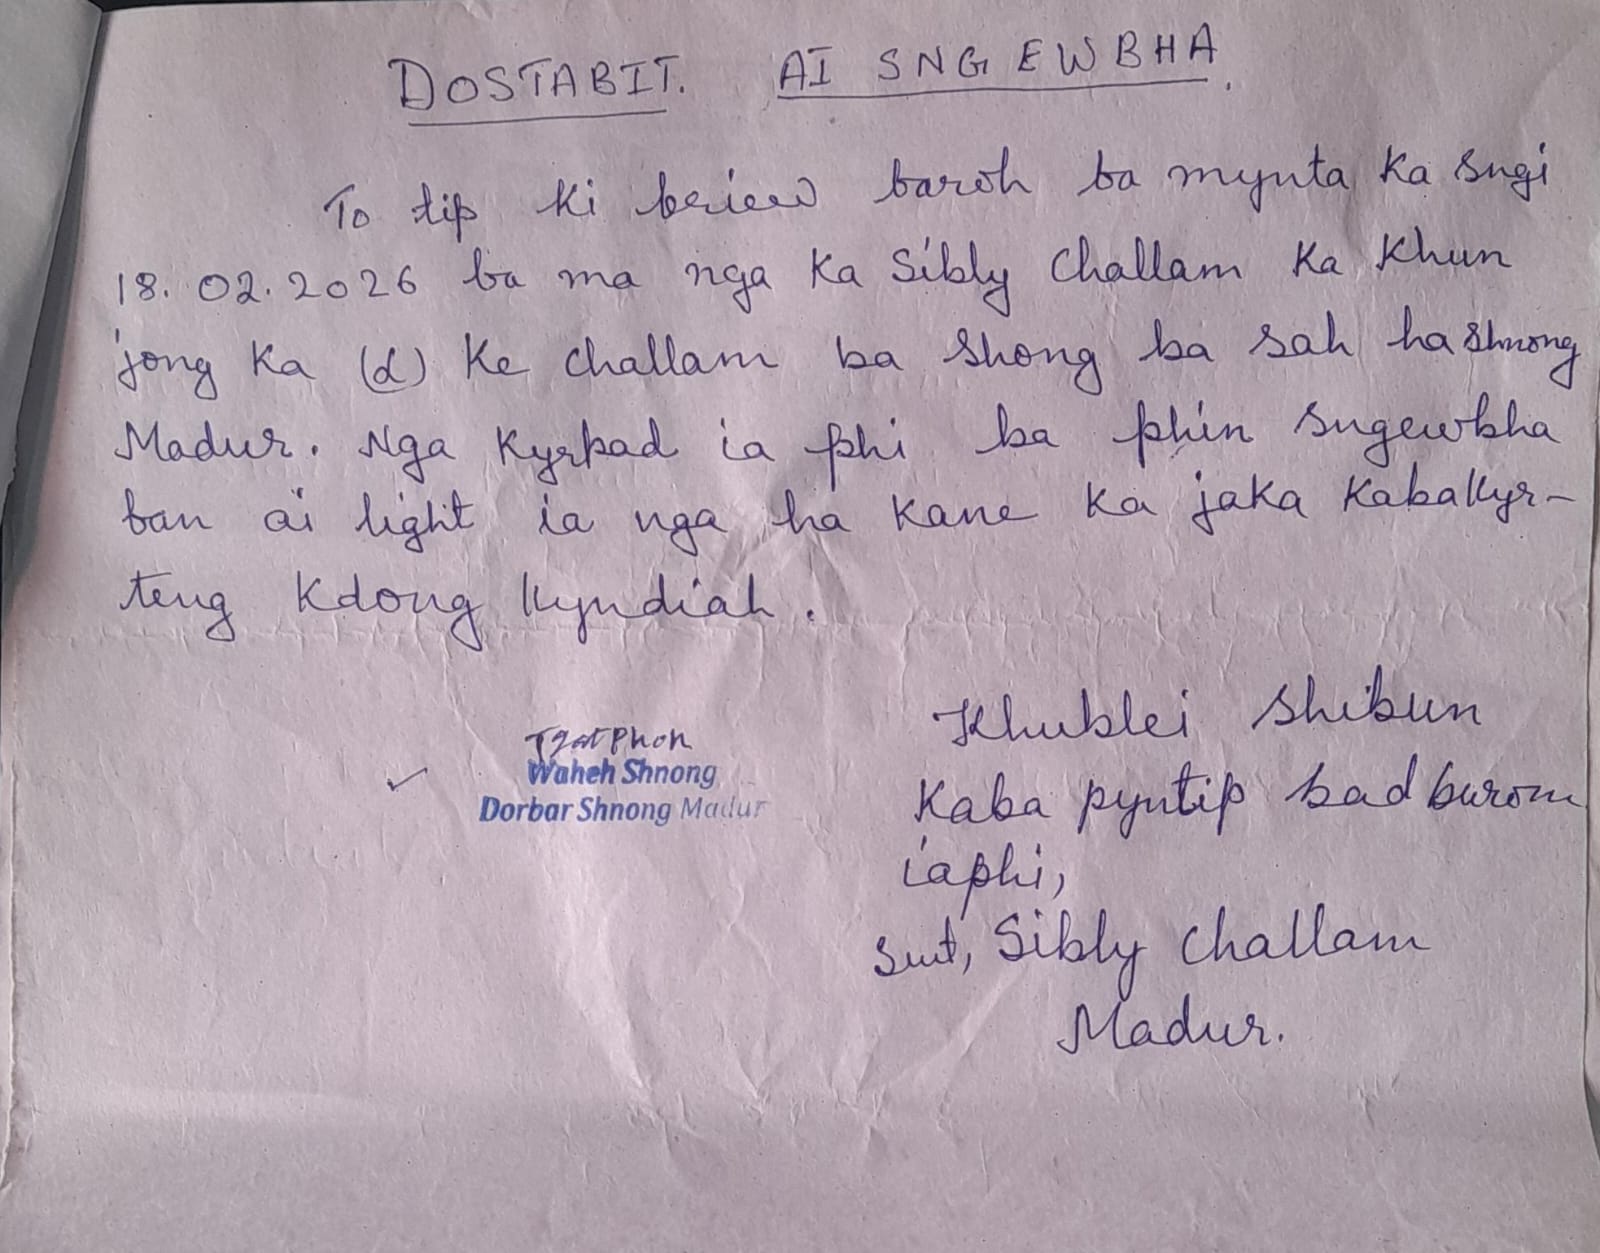 DOSTABIT. AI SNGEWBHA.
To tip ki briew baroh ba mynta ka sngi
18.02.2026 ba ma nga ka Sibly Challam ka Khun
jong ka (L) Ke Challam ba shong ba sah ha shnong
Madur. Nga Kyrpad ia phi ba phin sngewbha
ban ai light ia nga ha kane ka jaka kaba kyr-
teng Kdong Kyndiah.
Khublei Shibun
Kaba pyntip bad burom
iaphi,
Smt, Sibly Challam
Madur.
Waheh Shnong
Dorbar Shnong Madur